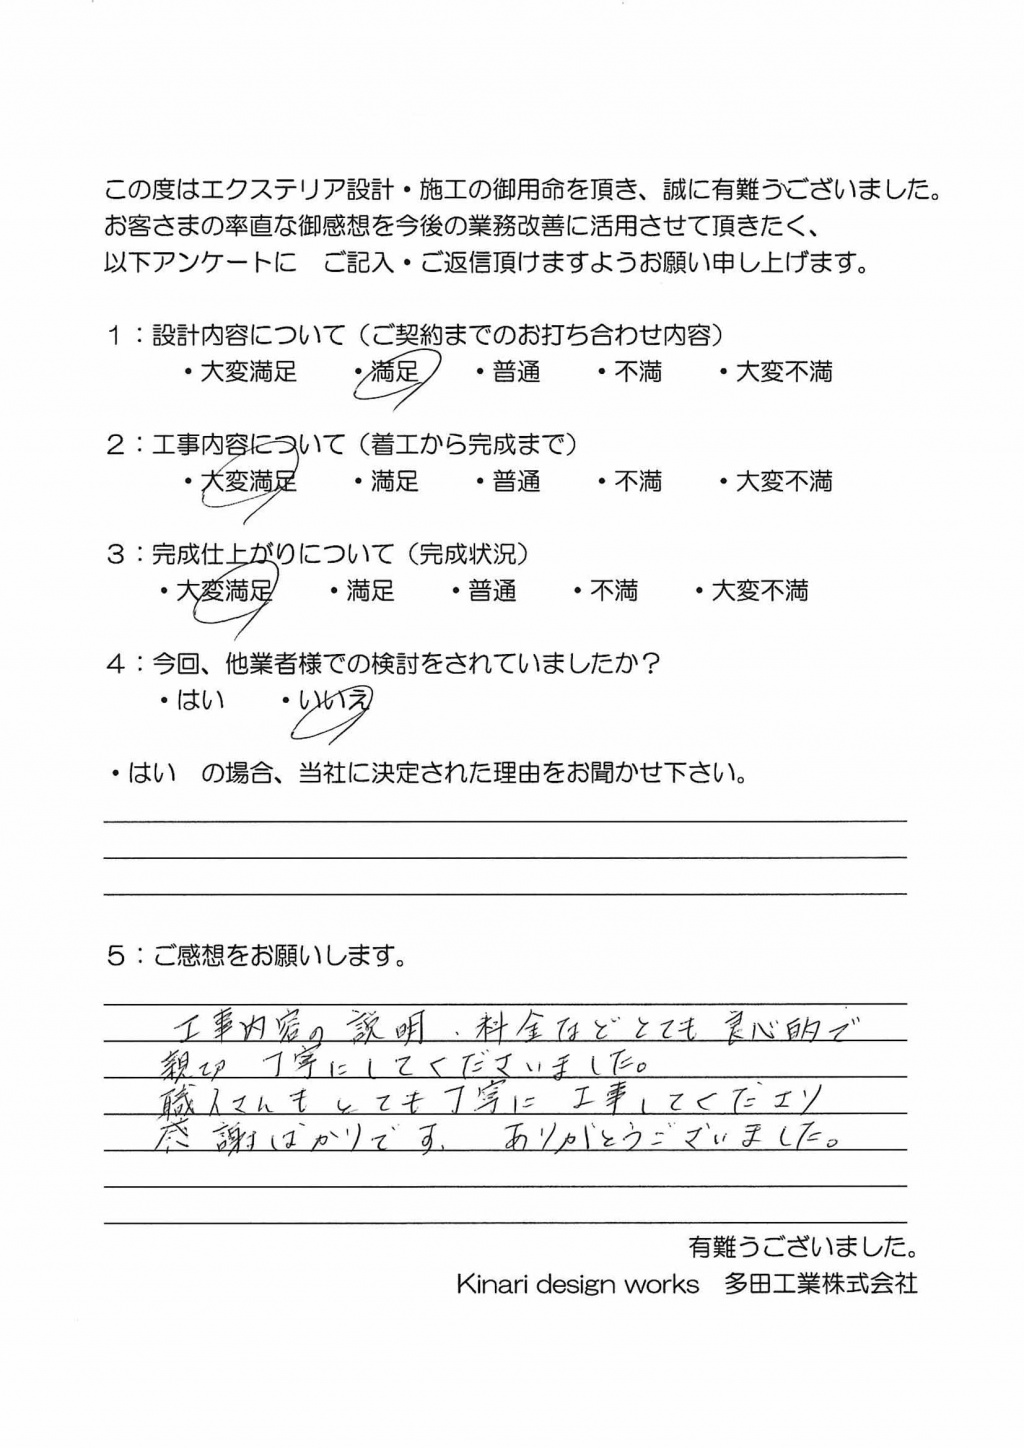 この度はエクステリア設計・施工の御用命を頂き、誠に有難うございました。
お客さまの率直な御感想を今後の業務改善に活用させて頂きたく、
以下アンケートに　ご記入・ご返信頂けますようお願い申し上げます。
１：設計内容について（ご契約までのお打ち合わせ内容）
・大変満足　・満足　・普通　・不満　・大変不満
２：工事内容について（着工から完成まで）
・大変満足　・満足　・普通　・不満　・大変不満
３：完成仕上がりについて（完成状況）
・大変満足　・満足　・普通　・不満　・大変不満
４：今回、他業者様での検討をされていましたか？
・はい　・いいえ
・はい　の場合、当社に決定された理由をお聞かせ下さい。
５：ご感想をお願いします。
工事内容の説明、料金などとても良心的で
親切 丁寧にしてくださいました。
職人さんもとても丁寧に工事してくださり
感謝ばかりです。ありがとうございました。
有難うございました。
Kinari design works　多田工業株式会社